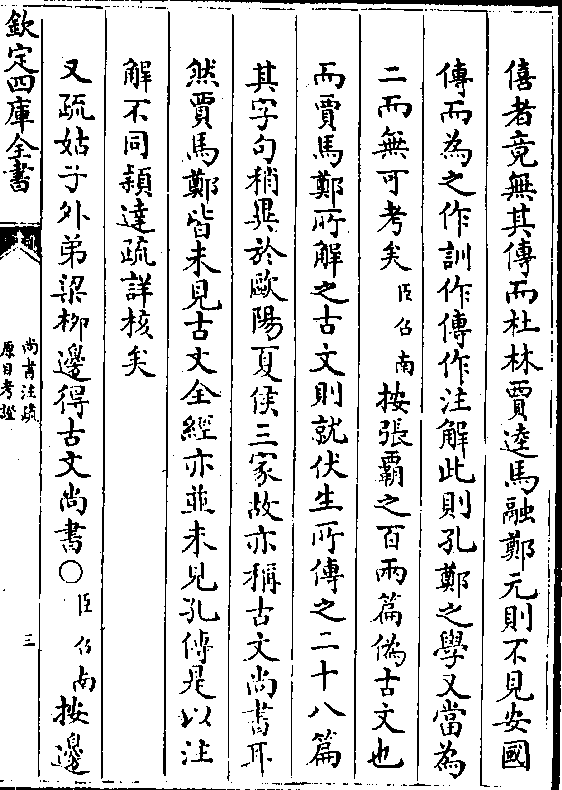 僖者竟無其傳而杜林賈逵馬融鄭元則不見安國
傳而為之作訓作傳作注解此則孔鄭之學又當為
二而無可考矣臣召南按張霸之百兩篇偽古文也
而賈馬鄭所解之古文則就伏生所傳之二十八篇
其字句稍異於歐陽夏侯三家故亦稱古文尚書耳
然賈馬鄭皆未見古文全經亦並未見孔傳是以注
解不同穎達疏詳核矣
又疏姑子外弟梁栁邊得古文尚書○臣召南按邊
欽定四庫全書
尚書注疏
原目考證
三